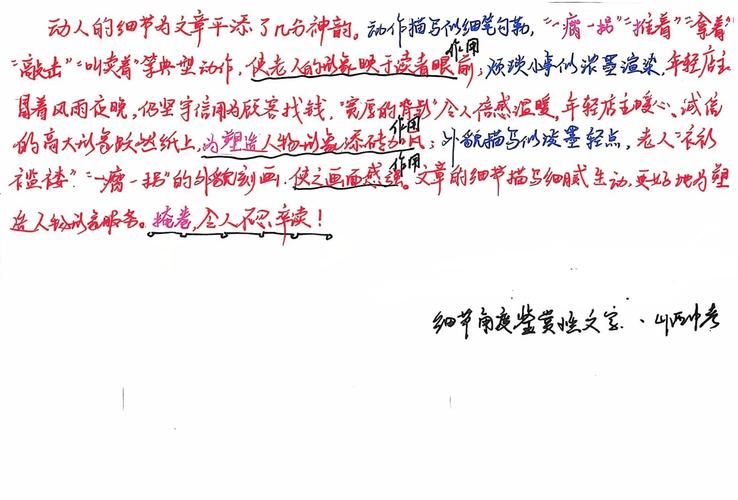 动人的细节为文章平添了几分神韵。动作描写似细笔勾勒，“一瘸一拐”“推着”“拿着”
作用
“敲击”“叫卖着”等典型动作，使老人的形象映于读者眼前；烦琐小事似浓墨渲染，年轻店主
冒着风雨夜晚，仍坚守信用为顾客找钱，“宽厚的背影”令人倍感温暖，年轻店主暖心、诚信
作用
的高大形象跃然纸上，为塑造人物形象添砖加瓦；外貌描写似淡墨轻点，老人“衣衫
作用
褴褛”“一瘸一拐”的外貌刻画，使之画面感强。文章的细节描写细腻生动，更好地为塑
造人物形象服务。掩卷，令人不忍卒读！
细节角度鉴赏性文字、山西中考